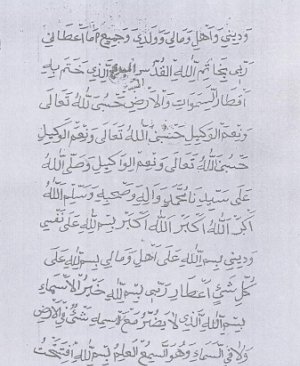 وَدِينِي وَاَهْلِ وَمَالِي وَوَلَدِي وَجَمِيعِ مَا اَعْطَانِي
رَبِّي بِخَاتَمِ اللهِ القُدُّسِ المنيع الَّذِي خَتَمَ بِهِ
اَقْطَارَ السَّمَوَاتِ وَالْاَرْضِ حَسْبِيَ اللهُ تَعَالَى
وَنِعْمَ الْوَكِيلِ حَسْبِيَ اللهُ تَعَالَى وَنِعْمَ الْوَكِيلِ
حَسْبِيَ اللهُ تَعَالَى وَنِعْمَ الْوَاكِيلِ وَصَلَّى اللهُ
عَلَى سَيِّدِنَا مُحَمَّدٍ وَالِهِ وَصَحْبِهِ وَسَلَّمَ اللهُ
اَكْبَرُ اللهُ اَكْبَرُ اللهُ اَكْبَرُ بِسْمِ اللهِ عَلَى نَفْسِي
وَدِينِي بِسْمِ اللهِ عَلَى اَهْلِ وَمَالِي بِسْمِ اللهِ عَلَى
كُلِّ شَيْءٍ اَعْطَانِ رَبِّي بِسْمِ اللهِ خَيْرُ الْاَسْمَاءِ
بِسْمِ اللهِ الَّذِي لَا يَضُرُّ مَعَ اسْمِهِ شَيْءٌ فِي الْاَرْضِ
وَلَا فِي السَّمَاءِ وَهُوَ السَّمِيعُ الْعَلِيمُ بِسْمِ اللهِ افْتَتَحْتُ